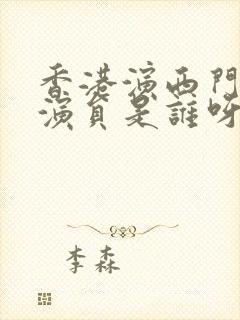 香港演西門
演員是誰呀
李森